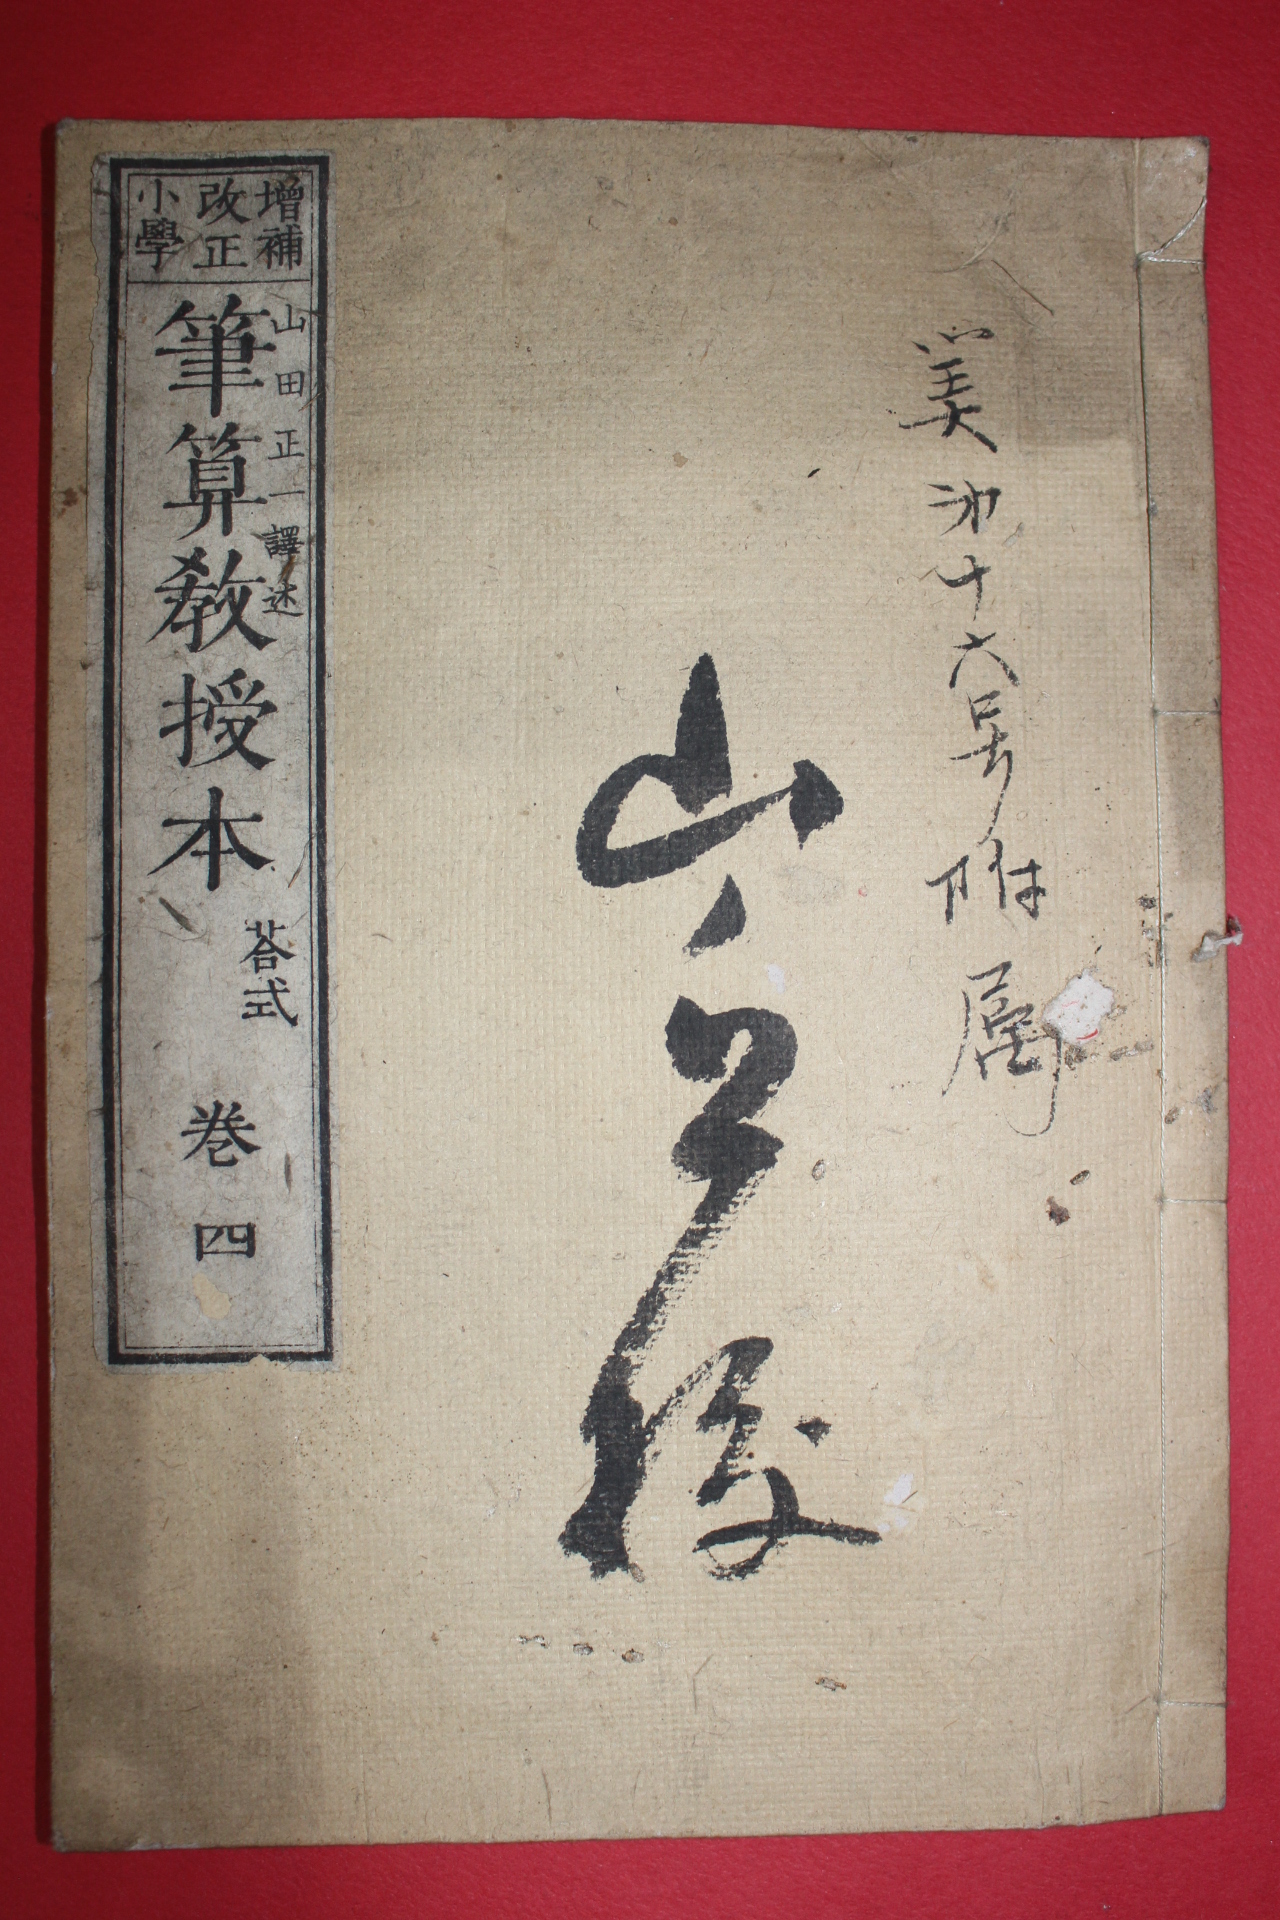 美第十六号附属
山口校
增補
改正
小學
山田正一譯述
筆算敎授本
荅式
巻四